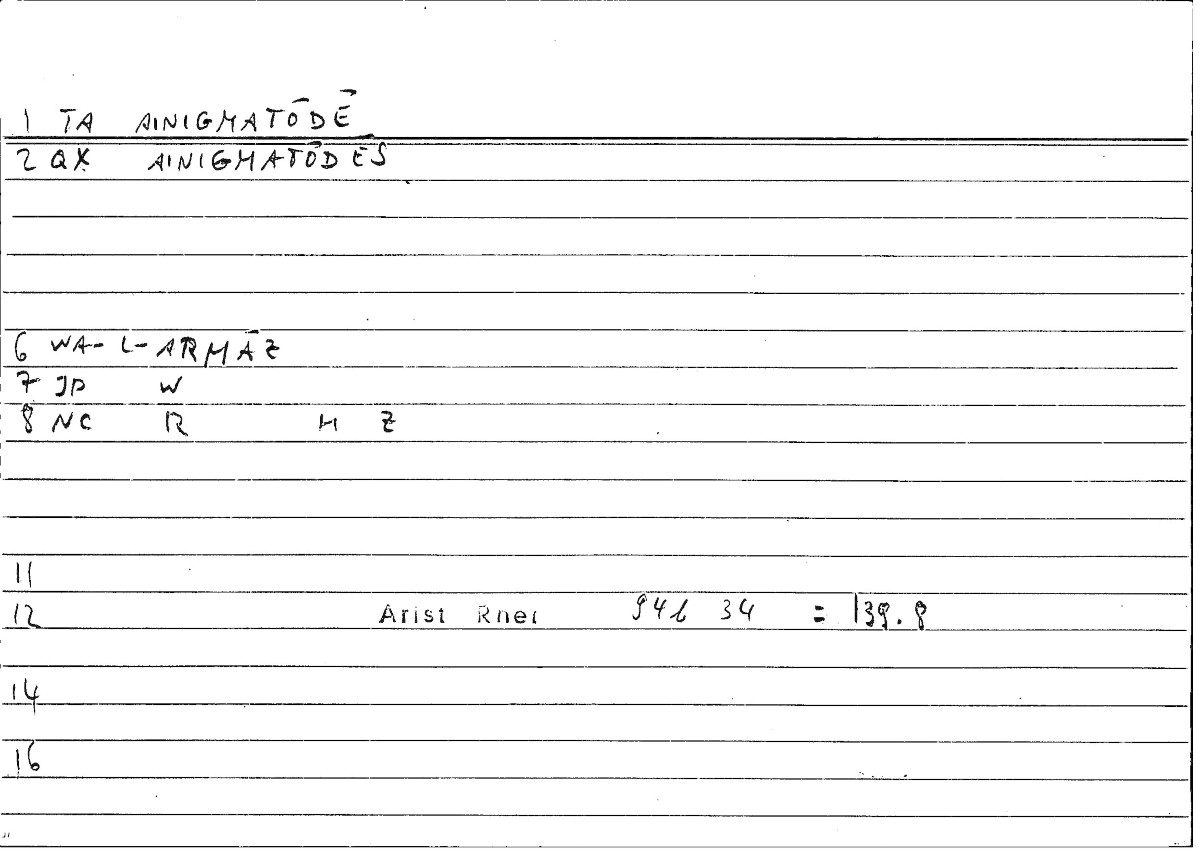 1 TA AINIGMATŌDĒ
2 QX AINIGMATŌDĒS
6 WA-L-ARMĀZ
7 JP W
8 NC R M Z
11
12 Arist Rhet 94b 34 = 139.8
14
16